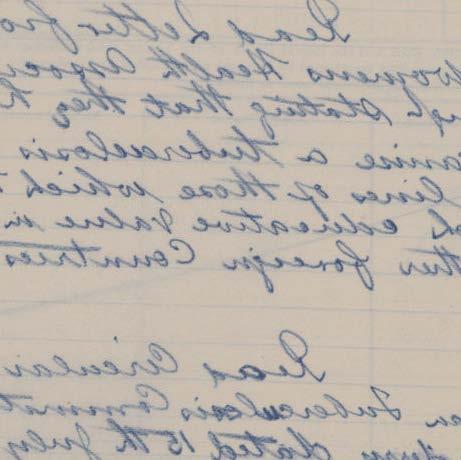 Read Letter fro
Womens Health Associ
ugh stating that they h
amine a Tuberculosis
lines of those which
of educative value in
ther foreign Countries
Read Circular
on Tuberculosis Committ
dated 15th July